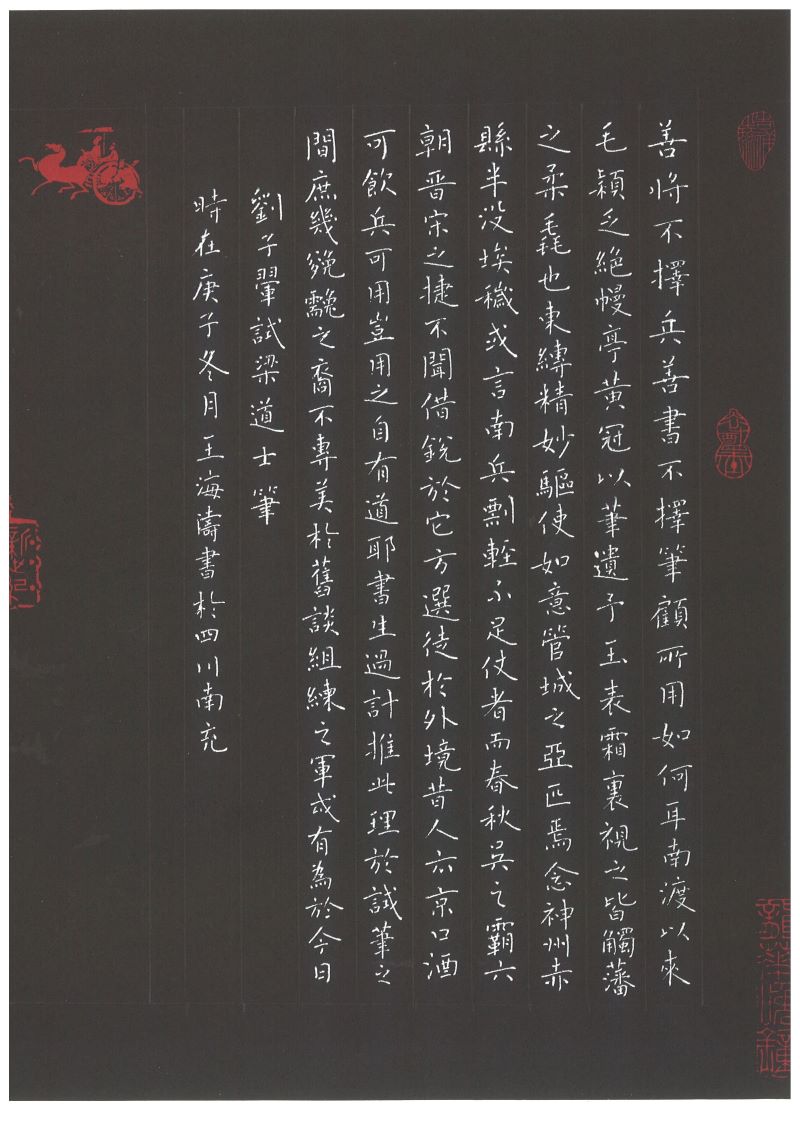 善將不擇兵善書不擇筆顧所用如何耳南渡以來
毛穎乏絕幔亭黃冠以筆遺予玉表霜裏視之皆觸藩
之柔毳也束縛精妙驅使如意管城之亞匹焉念神州赤
縣半没埃穢或言南兵剽輕不足仗者而春秋吳之霸六
朝晋宋之捷不聞借銳於它方選徒於外境昔人亦京口酒
可飲兵可用豈用之自有道耶書生過計推此理於試筆之
間庶幾㕙䨲之裔不專美於舊談組練之軍或有為於今日
劉子翬試梁道士筆
時在庚子冬月王海濤書於四川南充